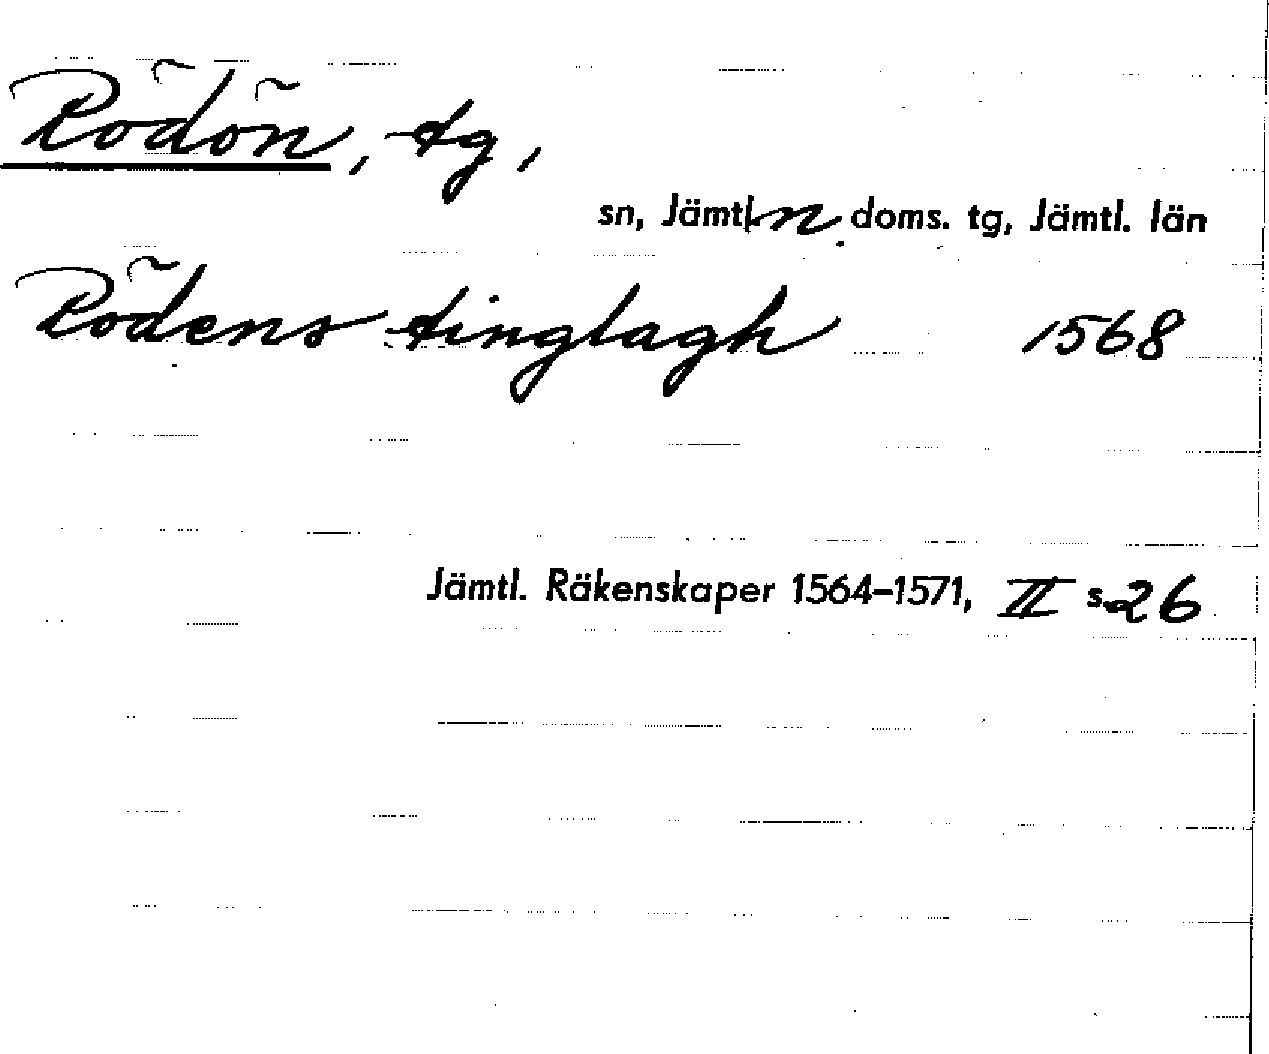 Rödön, tg,
sn, Jämtl. n. doms. tg, Jämtl. län
Rödens tinglagh 1568
Jämtl. Räkenskaper 1564–1571, II s. 26